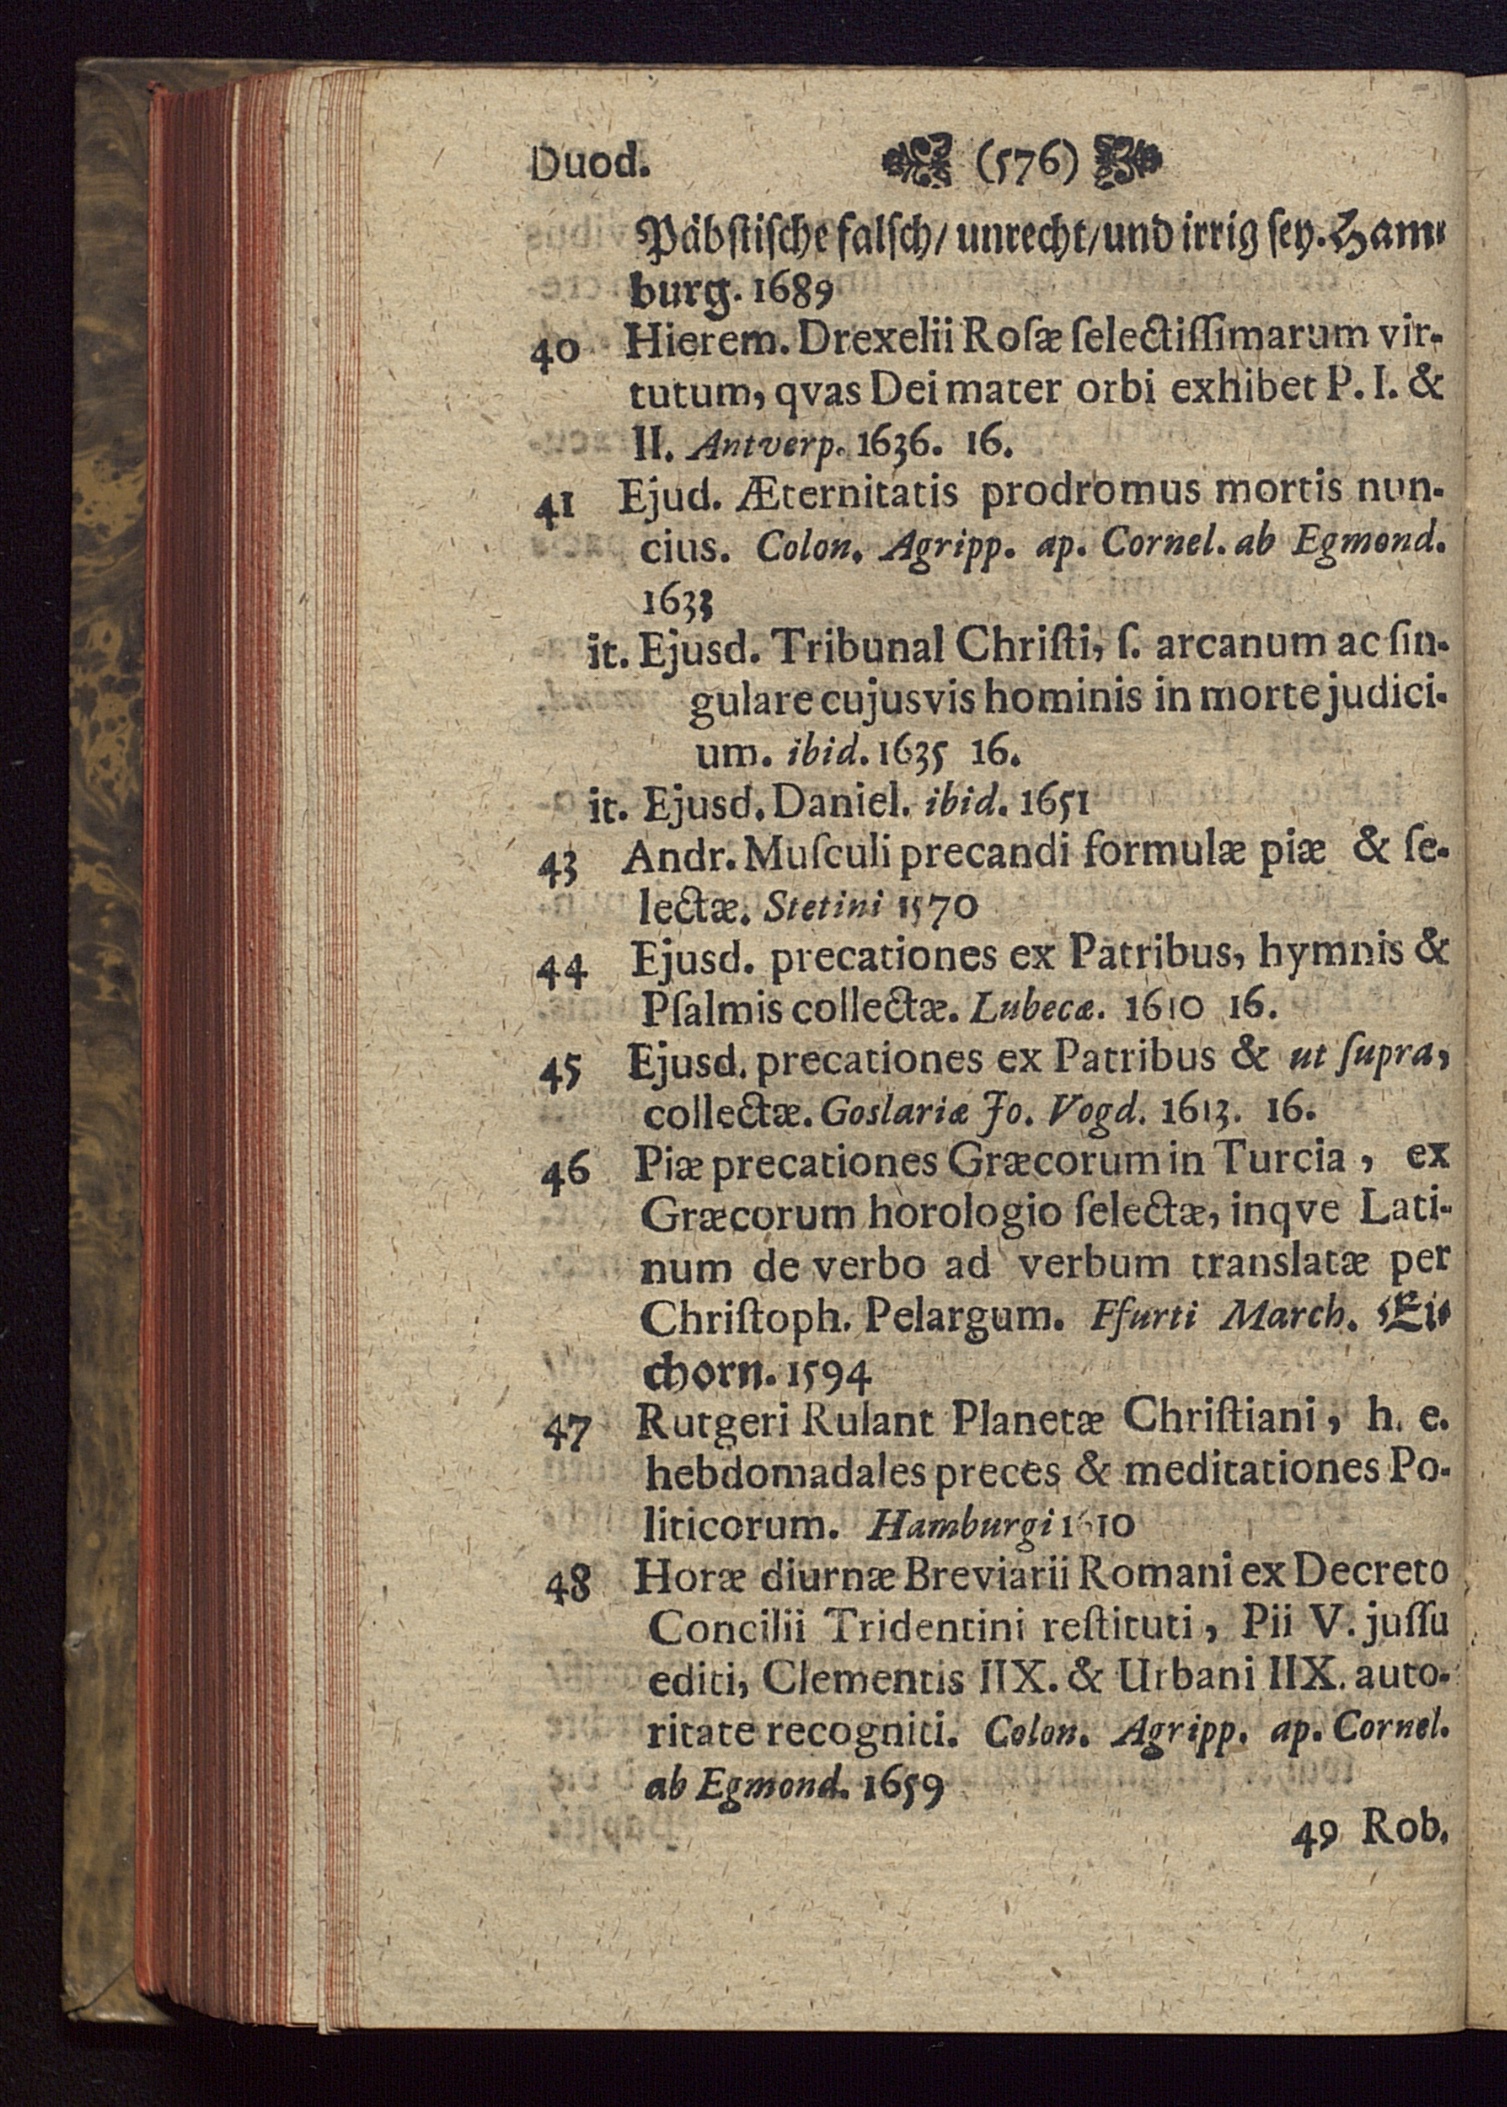 Duod. (576)
Päbſtiſche falſch/ unrecht/ und irrig ſey. Ham-
burg. 1689
40 Hierem. Drexelii Roſæ ſelectiſſimarum vir-
tutum, qvas Dei mater orbi exhibet P. I. &
II. Antverp. 1636. 16.
41 Ejud. Æternitatis prodromus mortis nun-
cius. Colon. Agripp. ap. Cornel. ab Egmond.
1633
it. Ejusd. Tribunal Chriſti, ſ. arcanum ac ſin-
gulare cujusvis hominis in morte judici-
um. ibid. 1635 16.
it. Ejusd. Daniel. ibid. 1651
43 Andr. Muſculi precandi formulæ piæ & ſe-
lectæ. Stetini 1570
44 Ejusd. precationes ex Patribus, hymnis &
Pſalmis collectæ. Lubecæ. 1610 16.
45 Ejusd. precationes ex Patribus & ut ſupra,
collectæ. Goslariæ Jo. Vogd. 1613. 16.
46 Piæ precationes Græcorum in Turcia, ex
Græcorum horologio ſelectæ, inqve Lati-
num de verbo ad verbum translatæ per
Chriſtoph. Pelargum. Ffurti March. Ei-
chorn. 1594
47 Rutgeri Rulant Planetæ Chriſtiani, h. e.
hebdomadales preces & meditationes Po-
liticorum. Hamburgi 1610
48 Horæ diurnæ Breviarii Romani ex Decreto
Concilii Tridentini reſtituti, Pii V. juſſu
editi, Clementis IIX. & Urbani IIX. auto-
ritate recogniti. Colon. Agripp. ap. Cornel.
ab Egmond. 1659
49 Rob.